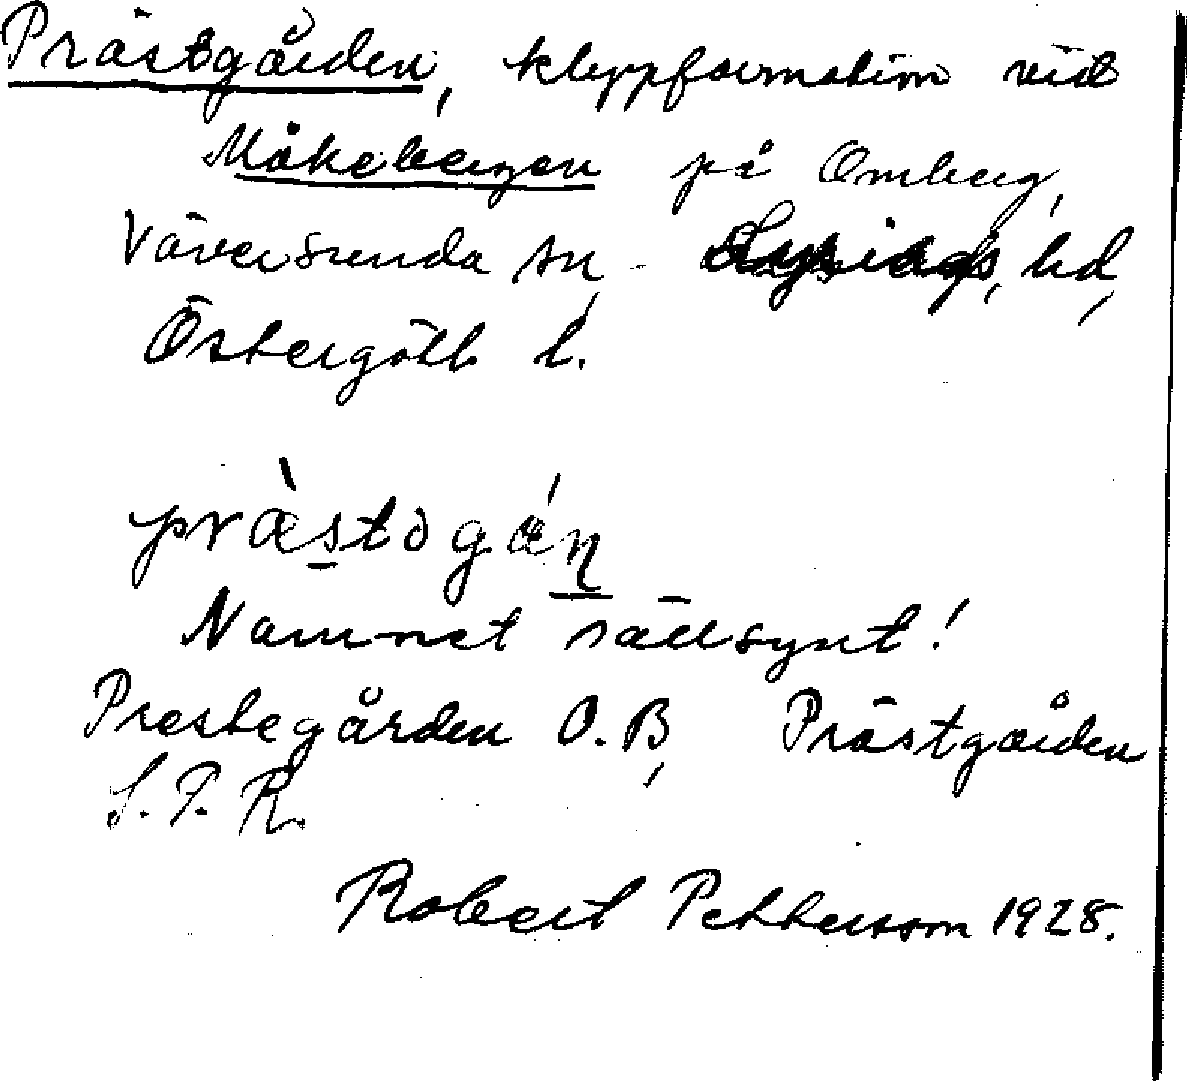 Prästgården, klippformation vid
Måkebergen på Omberg,
Väversunda sn, Lysings hd,
Östergötl. l.
præ̀stəgán
Namnet sällsynt!
Prestegården O.B, Prästgården
S.T.R.
Robert Pettersson 1928.